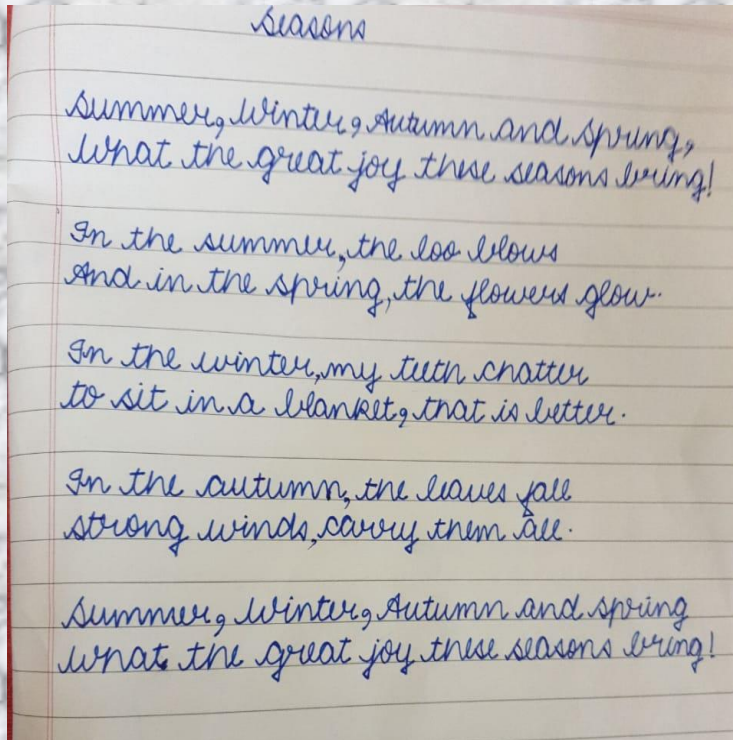 Seasons
Summer, Winter, Autumn and Spring,
What the great joy these seasons bring!
In the summer, the loo blows
And in the spring, the flowers glow.
In the winter, my teeth chatter
to sit in a blanket, that is better.
In the autumn, the leaves fall
strong winds, carry them all.
Summer, Winter, Autumn and spring
What the great joy these seasons bring!